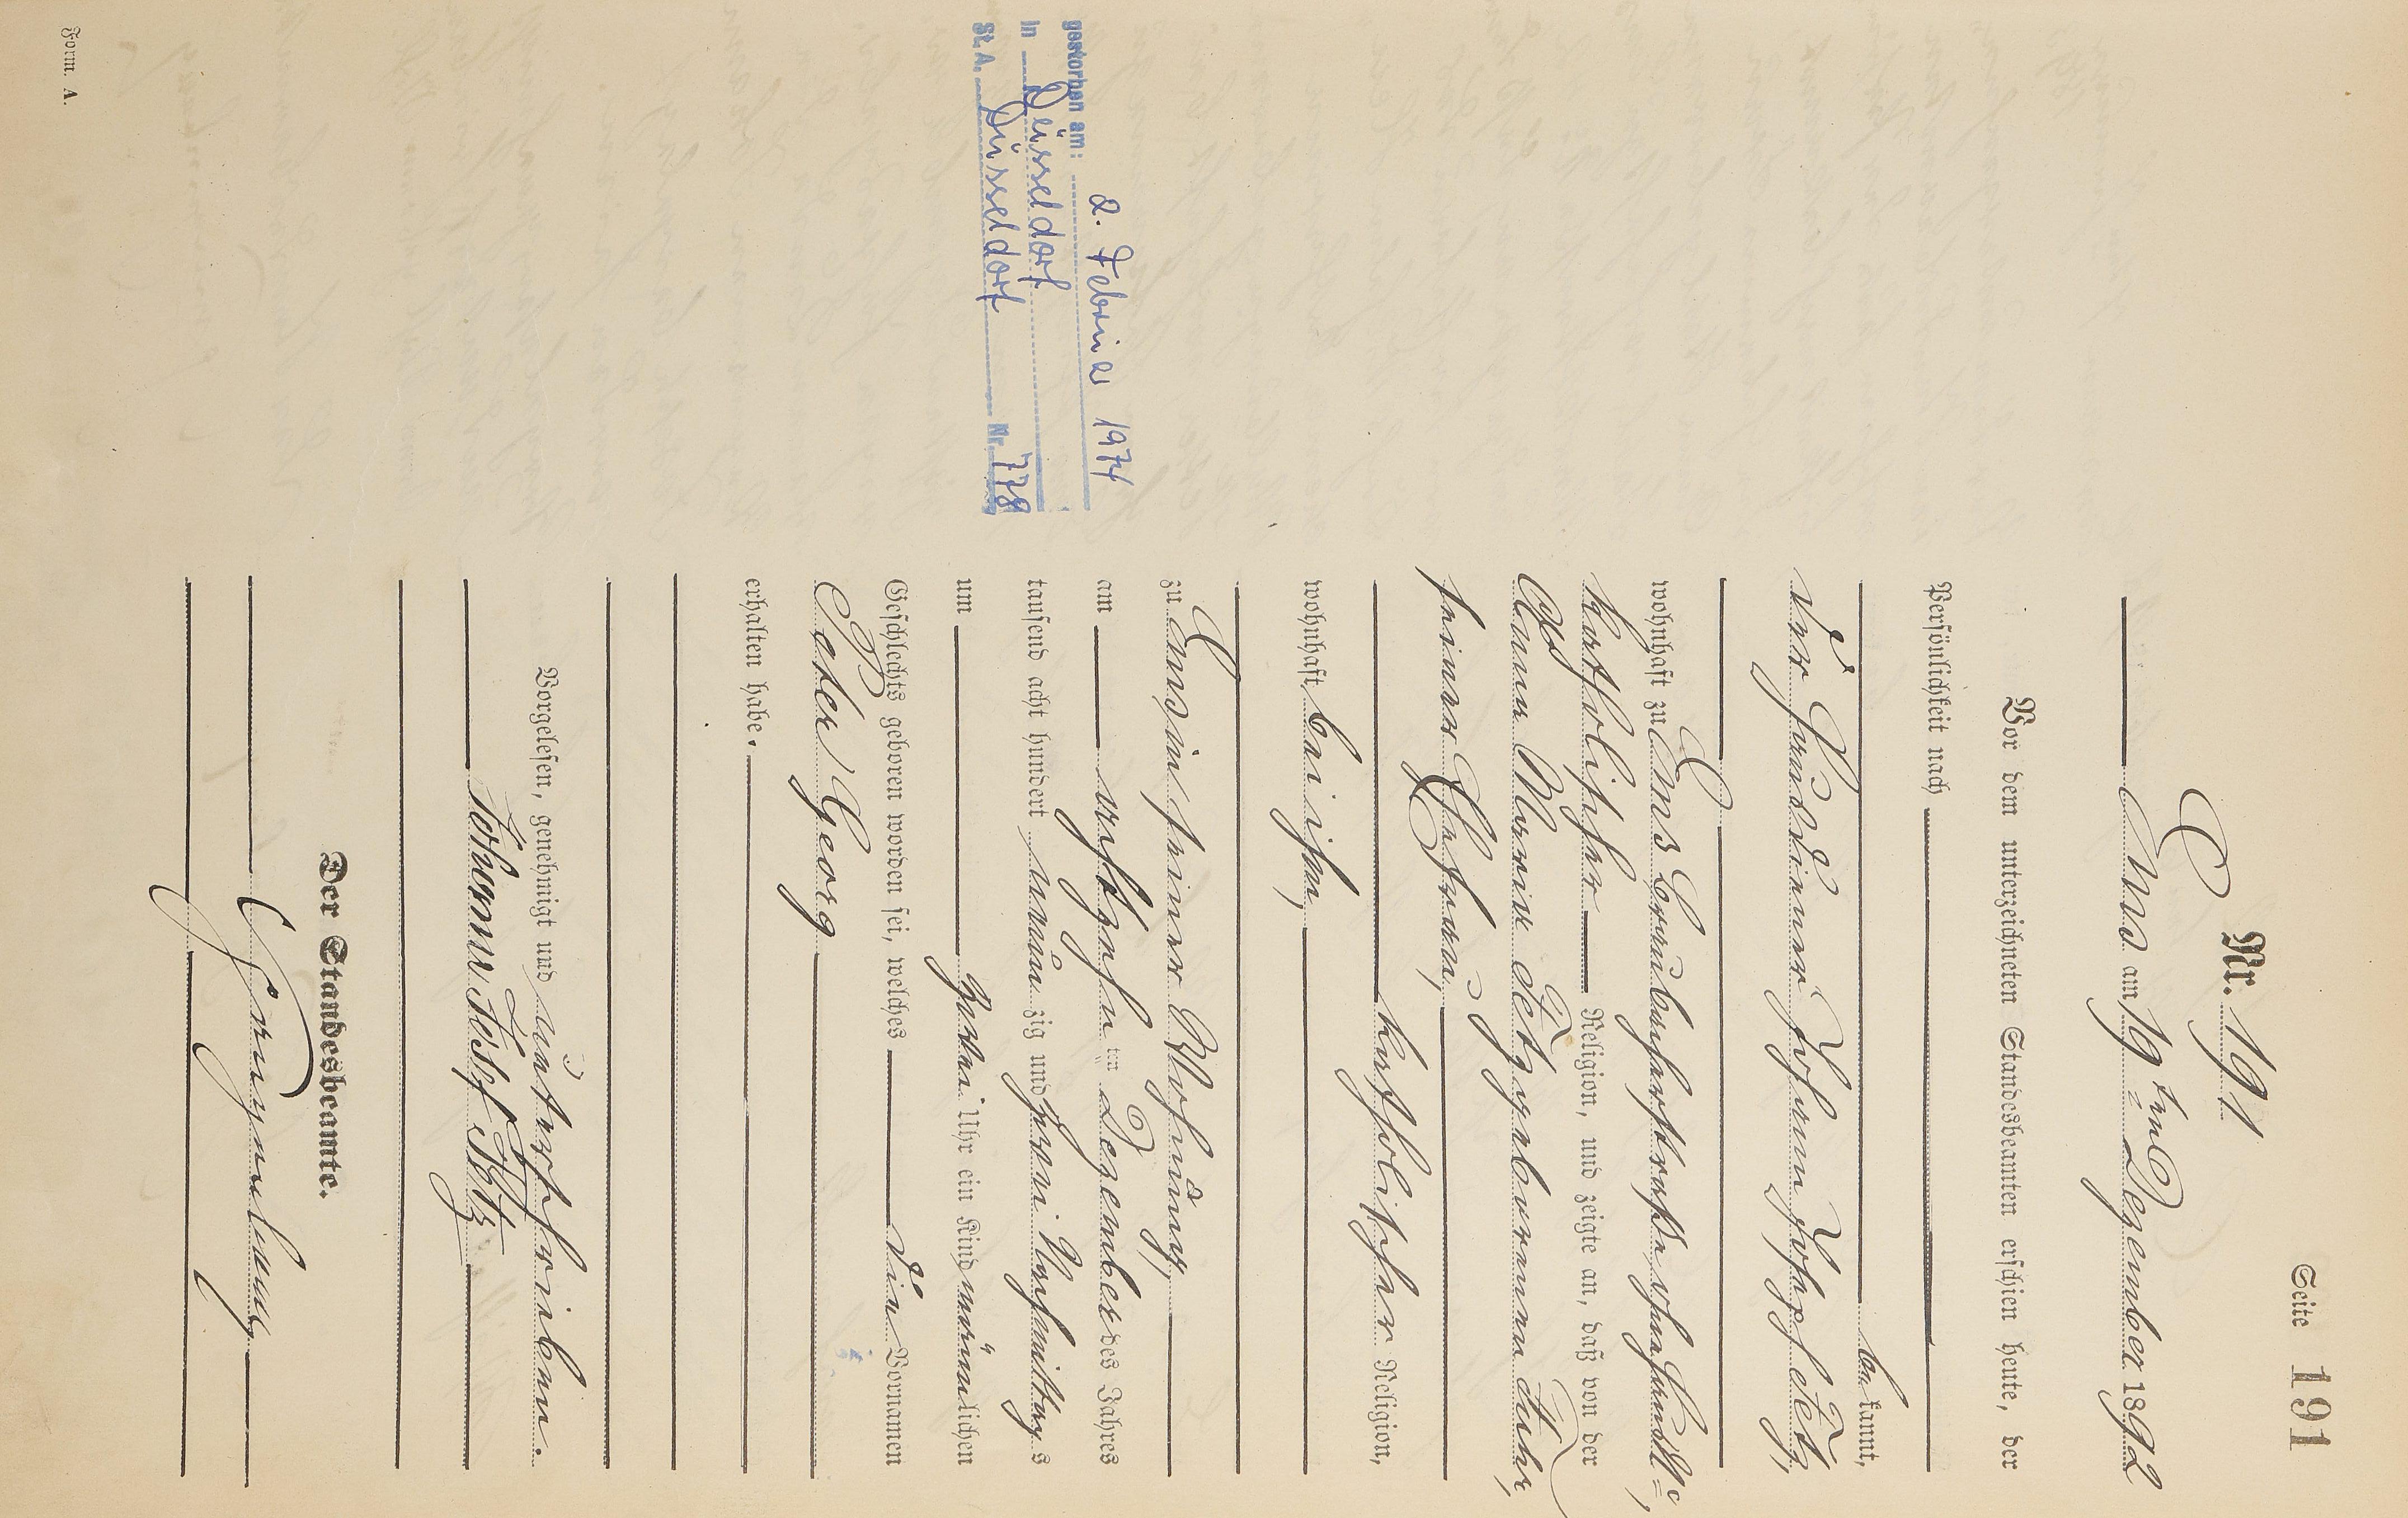 Seite 191
Nr. 191
Ems am 19ten Dezember 1892
Vor dem unterzeichneten Standesbeamten erschien heute, der
Persönlichkeit nach
bekannt,
der Taglöhner Johann Joseph Fetz,
wohnhaft zu Ems
katholischer Religion, und zeigte an, daß von der
Anna Maria Fetz geborenen
seiner Ehefrau,
katholischer Religion,
wohnhaft bei ihm,
zu Ems in seiner Wohnung,
am achtzehnten Dezember des Jahres
tausend acht hundert neunzig und zwei Nachmittags
um zwei Uhr ein Kind männlichen
Geschlechts geboren worden sei, welches die Vornamen
Peter Georg
erhalten habe.
Vorgelesen, genehmigt und unterschrieben.
Johann Josef Fetz
Der Standesbeamte.
gestorben am: 2. Februar 1974
in Düsseldorf
St.A. Düsseldorf Nr. 778
Form. A.